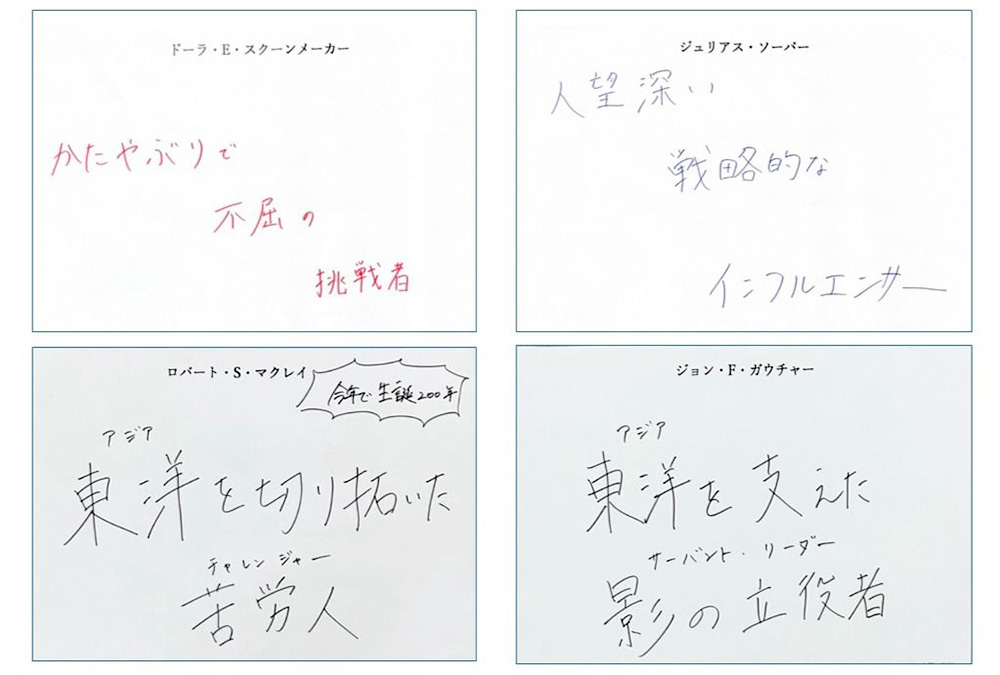 ドーラ・E・スクーンメーカー
かたやぶりで
不屈の
挑戦者
ジュリアス・ソーパー
人望深い
戦略的な
インフルエンサー
ロバート・S・マクレイ
今年で生誕200年
アジア
東洋を切り拓いた
チャレンジャー
苦労人
ジョン・F・ガウチャー
アジア
東洋を支えた
サーバント・リーダー
影の立役者